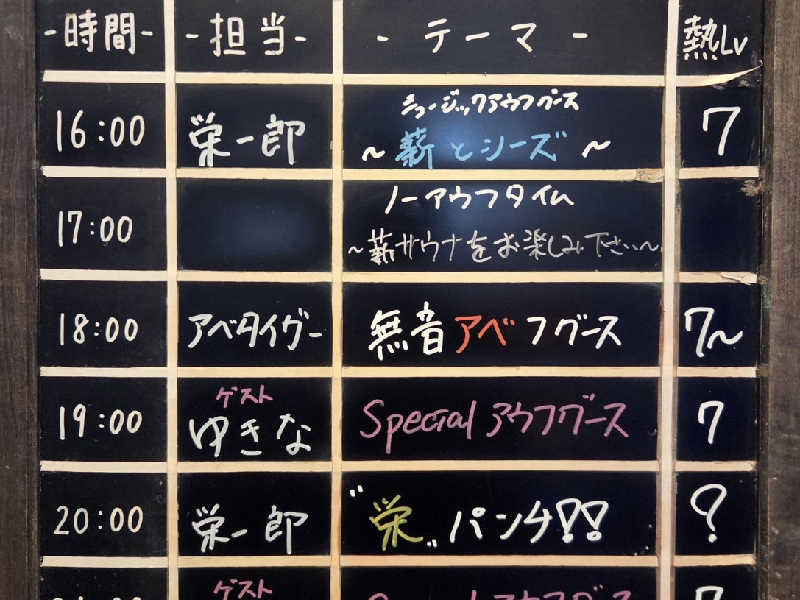 -時間- -担当- - テーマ - 熱Lv
16:00 栄一郎 ミュージックアウフグース 7
~ 薪とシーズ ~
17:00 ノーアウフタイム
~薪サウナをお楽しみ下さい~
18:00 アベタイガー 無音アベフグース 7~
19:00 ゲスト ゆきな Special アウフグース 7
20:00 栄一郎 "栄" パンチ!! ?
ゲスト